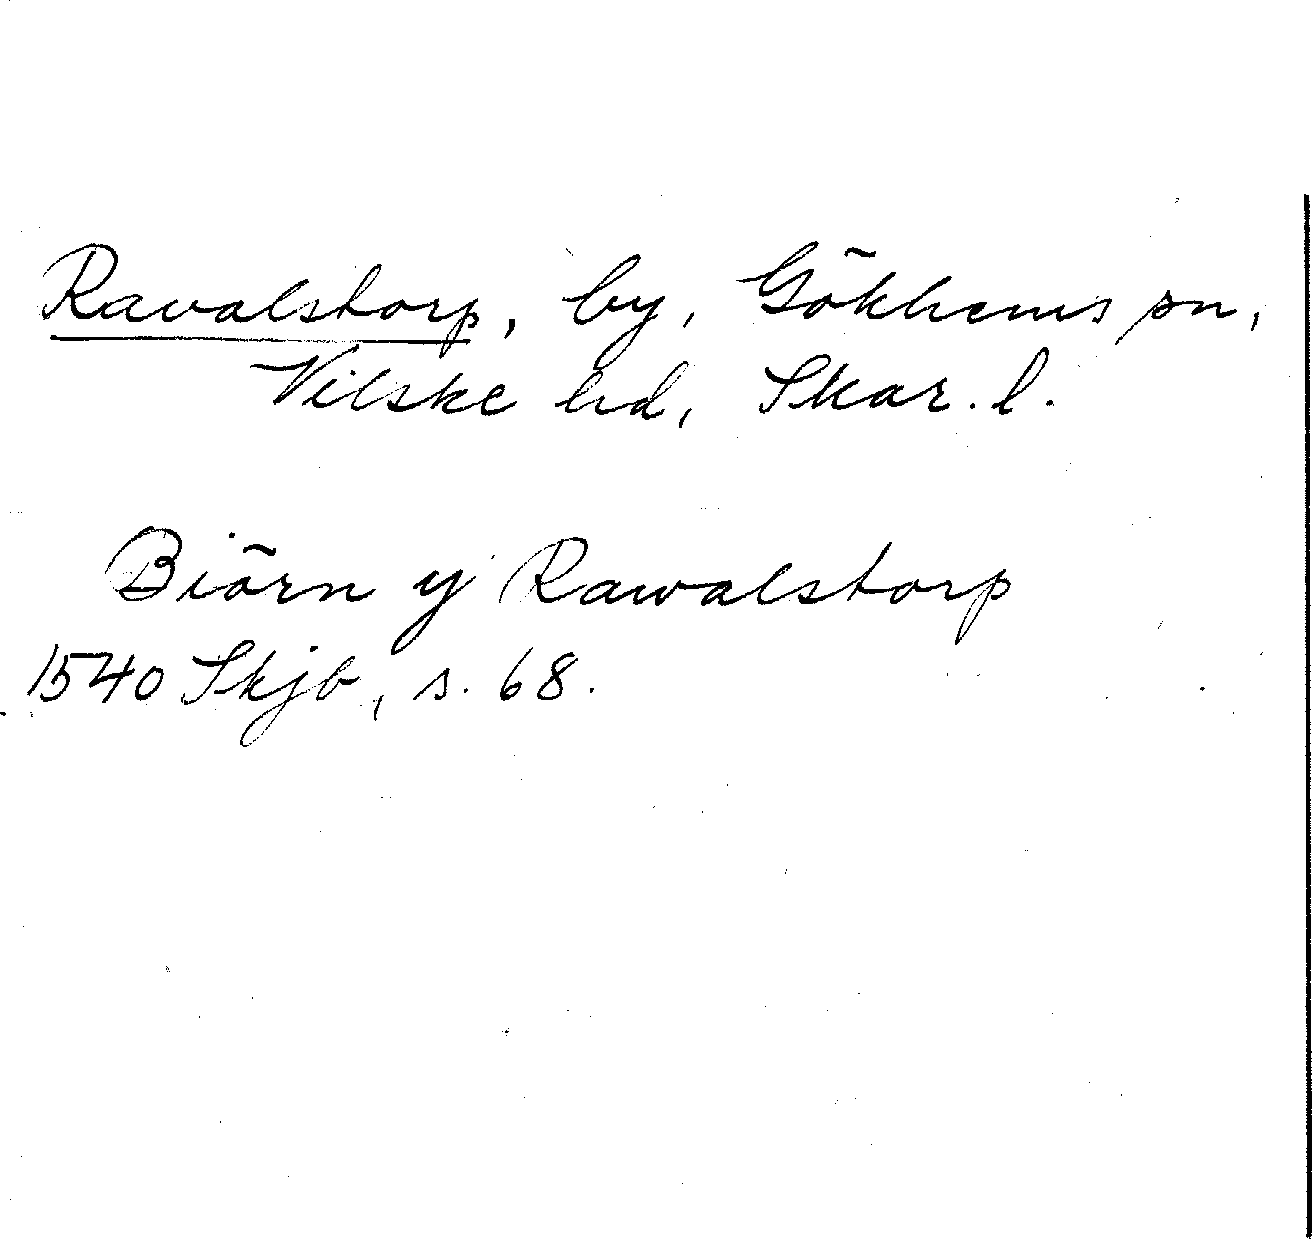 Ravalstorp, by, Gökhems sn,
Vilske hd, Skar. l.
Biörn y Rawalstorp
1540 Skjb, s. 68.